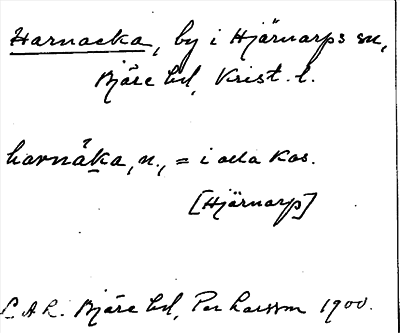 Harnacka, by i Hjärnarps sn,
Bjäre hd, Krist. l.
harnåka, n., = i alla kas.
[Hjärnarp]
L.A.L. Bjäre hd, Per Larsson 1900.